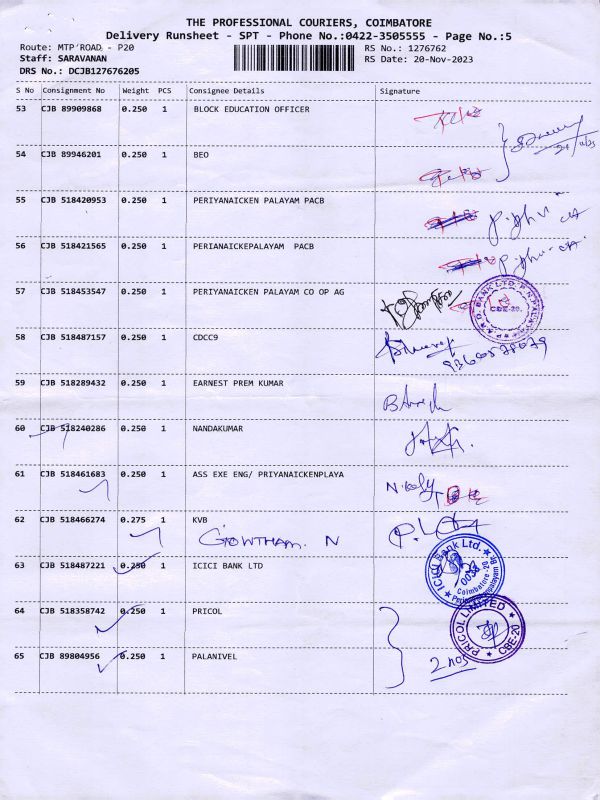 THE PROFESSIONAL COURIERS, COIMBATORE
Delivery Runsheet - SPT - Phone No.:0422-3505555 - Page No.:5
Route: MTP ROAD - P20
RS No.: 1276762
Staff: SARAVANAN
RS Date: 20-Nov-2023
DRS No.: DCJB127676205
S No Consignment No Weight PCS Consignee Details Signature
53 CJB 89909868 0.250 1 BLOCK EDUCATION OFFICER
54 CJB 89946201 0.250 1 BEO
55 CJB 518420953 0.250 1 PERIYANAICKEN PALAYAM PACB
56 CJB 518421565 0.250 1 PERIANAICKEPALAYAM PACB
57 CJB 518453547 0.250 1 PERIYANAICKEN PALAYAM CO OP AG
CBE-20.
58 CJB 518487157 0.250 1 CDCC9
59 CJB 518289432 0.250 1 EARNEST PREM KUMAR
60 CJB 518240286 0.250 1 NANDAKUMAR
61 CJB 518461683 0.250 1 ASS EXE ENG/ PRIYANAICKENPLAYA
62 CJB 518466274 0.275 1 KVB
GOWTHAM. N
63 CJB 518487221 0.250 1 ICICI BANK LTD
ICICI Bank Ltd.
Coimbatore -20
64 CJB 518358742 0.250 1 PRICOL
PRICOL LIMITED
CBE-20
65 CJB 89804956 0.250 1 PALANIVEL
2 nos